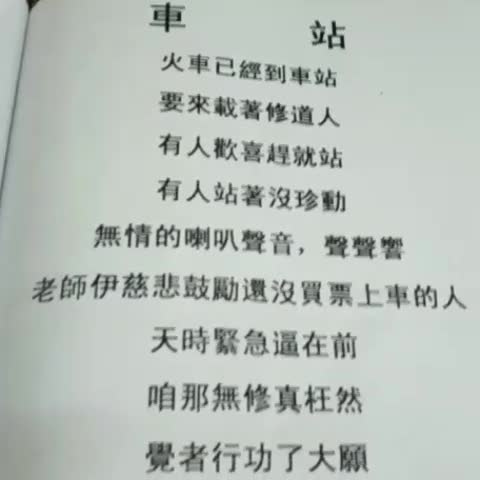 車 站
火車已經到車站
要來載著修道人
有人歡喜趕就站
有人站著沒珍動
無情的喇叭聲音，聲聲響
老師伊慈悲鼓勵還沒買票上車的人
天時緊急逼在前
咱那無修真枉然
覺者行功了大願